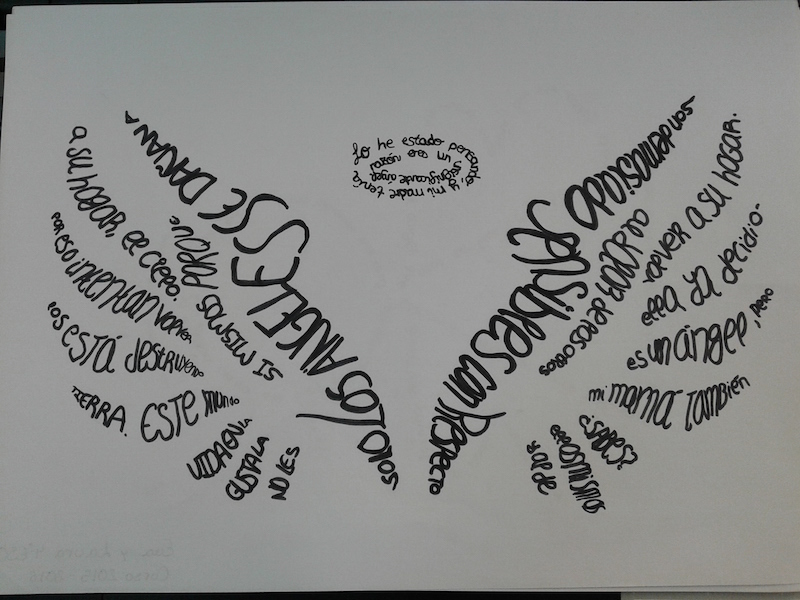 Lo he estado pensando, y mi madre tenía
razón eres un ángel
SOLO LOS ÁNGELES SE DAÑAN A
SI MISMOS PORQUE
NO LES
GUSTA LA
VIDA EN LA
TIERRA. ESTE mundo
LOS ESTÁ destruyendo
POR ESO intentan volver
a su hogar, el cielo.
son demasiado
sensibles con Respecto
al dolor de los otros
y al de
ellos mismos
¿SABES?
mi mamá también
es un ángel, pero
ella ya decidió
volver a su hogar.